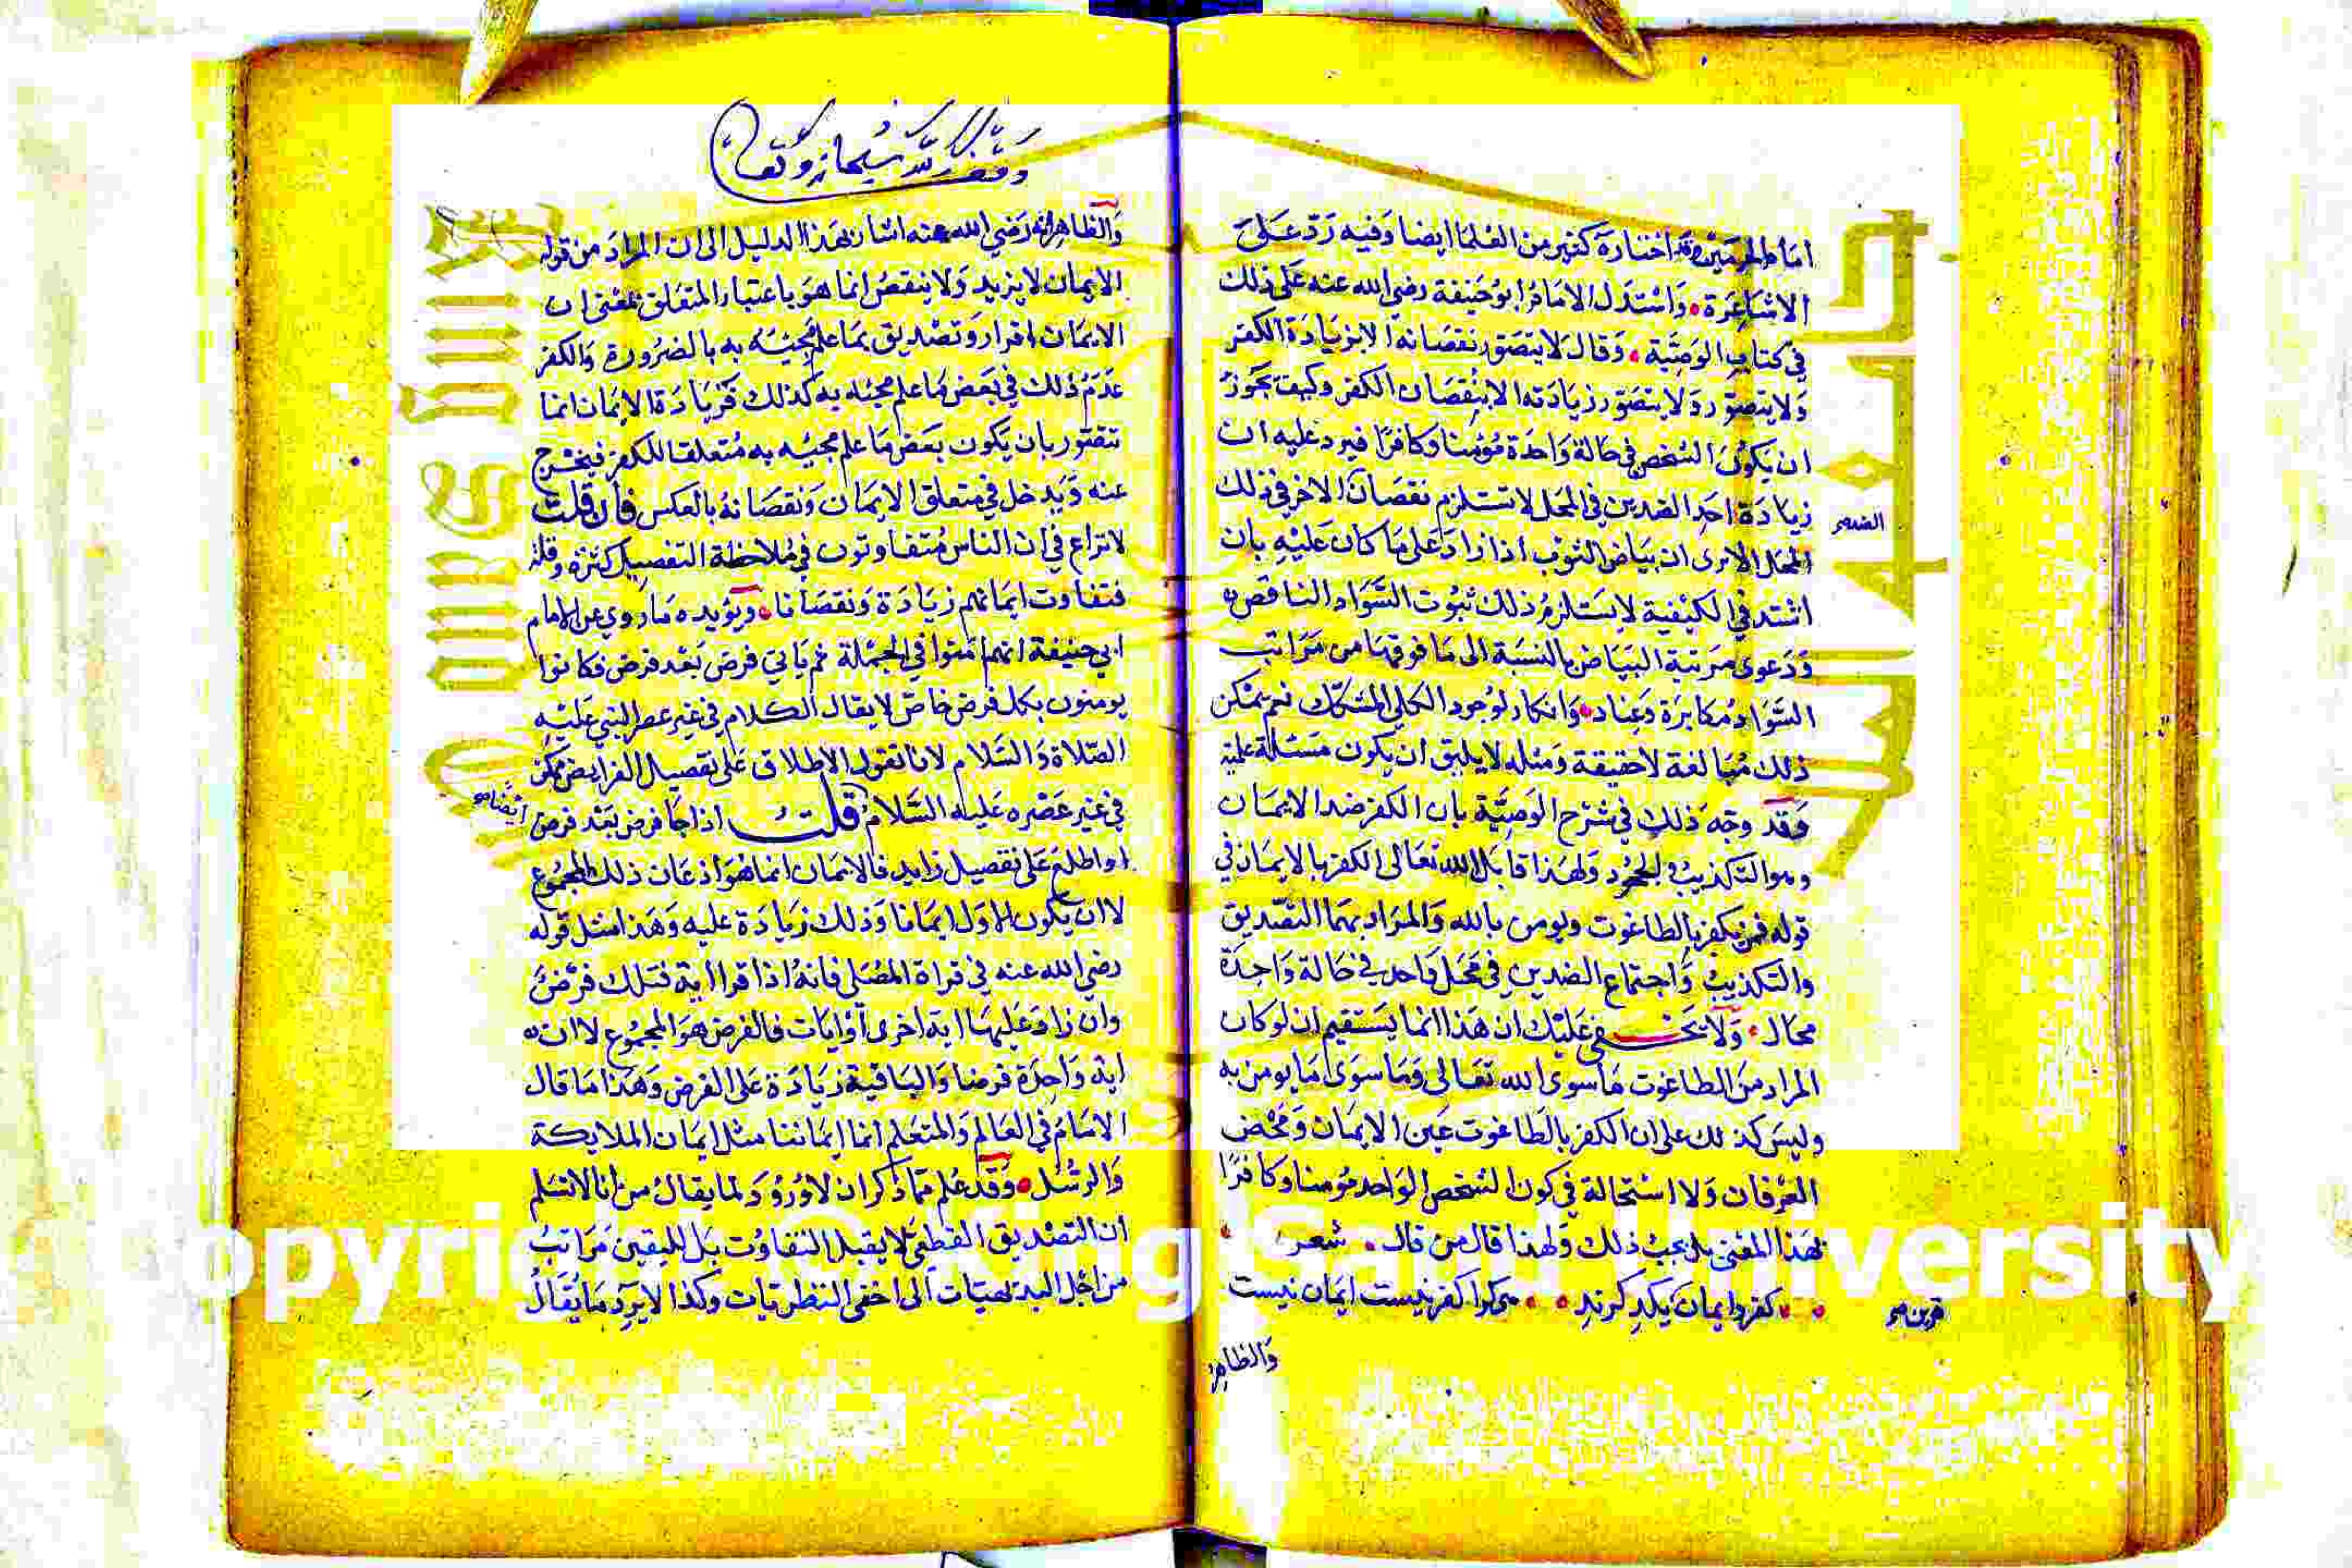 امام الحرمين وقد اختاره كثير من العلما ايضا وفيه رد على
الاشاعرة • واستدل الامام ابو حنيفة رضي الله عنه على ذلك
في كتاب الوصية • وقال لا يتصور نقصانه الا بزيادة الكفر
ولا يتصور ولا يتصور زيادته الا بنقصان الكفر وكيف يجوز
ان يكون الشخص في حالة واحدة مؤمنا وكافرا فيرد عليه ان
زيادة احد الضدين في المحل لا تستلزم نقصان الاخر في ذلك
الضد صح
المحل الا يرى ان بياض الثوب اذا زاد على ما كان عليه بان
اشتد في الكيفية لا يستلزم ذلك ثبوت السواد الناقص
ودعوى مرتبة البياض بالنسبة الى ما فوقها من مراتب
السواد مكابرة وعناد • وانكار لوجود الكلي المشكك نعم يمكن
ذلك مبالغة لا حقيقة ومثله لا يليق ان يكون مسئلة علمية
وقد وجه ذلك في شرح الوصية بان الكفر ضد الايمان
وهو التكذيب والجحود ولهذا قابل الله تعالى الكفر بالايمان في
قوله فمن يكفر بالطاغوت ويومن بالله والمراد بهما التصديق
والتكذيب واجتماع الضدين في محل واحد في حالة واحدة
محال • ولا يخفى عليك ان هذا انما يستقيم ان لو كان
المراد من الطاغوت ما سوى الله تعالى وما سوى ما يومن به
وليس كذلك على ان الكفر بالطاغوت عين الايمان ومحض
العرفان ولا استحالة في كون الشخص الواحد مؤمنا وكافرا
بهذا المعنى بل يجب ذلك ولهذا قال من قال • شعر •
• • كفر وايمان يكد كرند • • هركرا كفر نيست ايمان نيست
قرين صح
والظاهر
وقف لله سبحانه وتعالى
والظاهر انه رضي الله عنه اشار بهذا الدليل الى ان المراد من قوله
الايمان لا يزيد ولا ينقص انما هو باعتبار المتعلق بمعنى ان
الايمان اقرار وتصديق بما علم مجيئه به بالضرورة والكفر
عدم ذلك في بعض ما علم مجيئه به كذلك فزيادة الايمان انما
تتصور بان يكون بعض ما علم مجيئه به متعلقا للكفر فيخرج
عنه ويدخل في متعلق الايمان ونقصانه بالعكس فان قلت
لا نزاع في ان الناس متفاوتون في ملاحظة التفصيل كثرة وقلة
فتفاوت ايمانهم زيادة ونقصانا • ويؤيده ما روي عن الامام
ابي حنيفة انهم امنوا في الجملة ثم ياتي فرض بعد فرض فكانوا
يومنون بكل فرض خاص لا يقال الكلام في غير عصر النبي عليه
الصلاة والسلام لانا نقول الاطلاق على تفصيل الفرايض ممكن
في غير عصره عليه السلام قلت اذا جا فرض بعد فرض
ايضا صح
او اطلع على تفصيل زايد فالايمان انما هو اذعان ذلك المجموع
لا ان يكون الاول ايمانا وذلك زيادة عليه وهذا مثل قوله
رضي الله عنه في قراة المصلي فانه اذا قرا اية فتلك فرض
وان زاد عليها اية اخرى او ايات فالفرض هو المجموع لا ان
اية واحدة فرضا والباقية زيادة على الفرض وهذا ما قال
الامام في العالم والمتعلم انما ايماننا مثل ايمان الملايكة
والرسل • وقد علم مما ذكر ان لا ورود لما يقال من انا لا نسلم
ان التصديق القطعي لا يقبل التفاوت بل لليقين مراتب
من اجل البديهيات الى اخفى النظريات وكذا لا يرد ما يقال